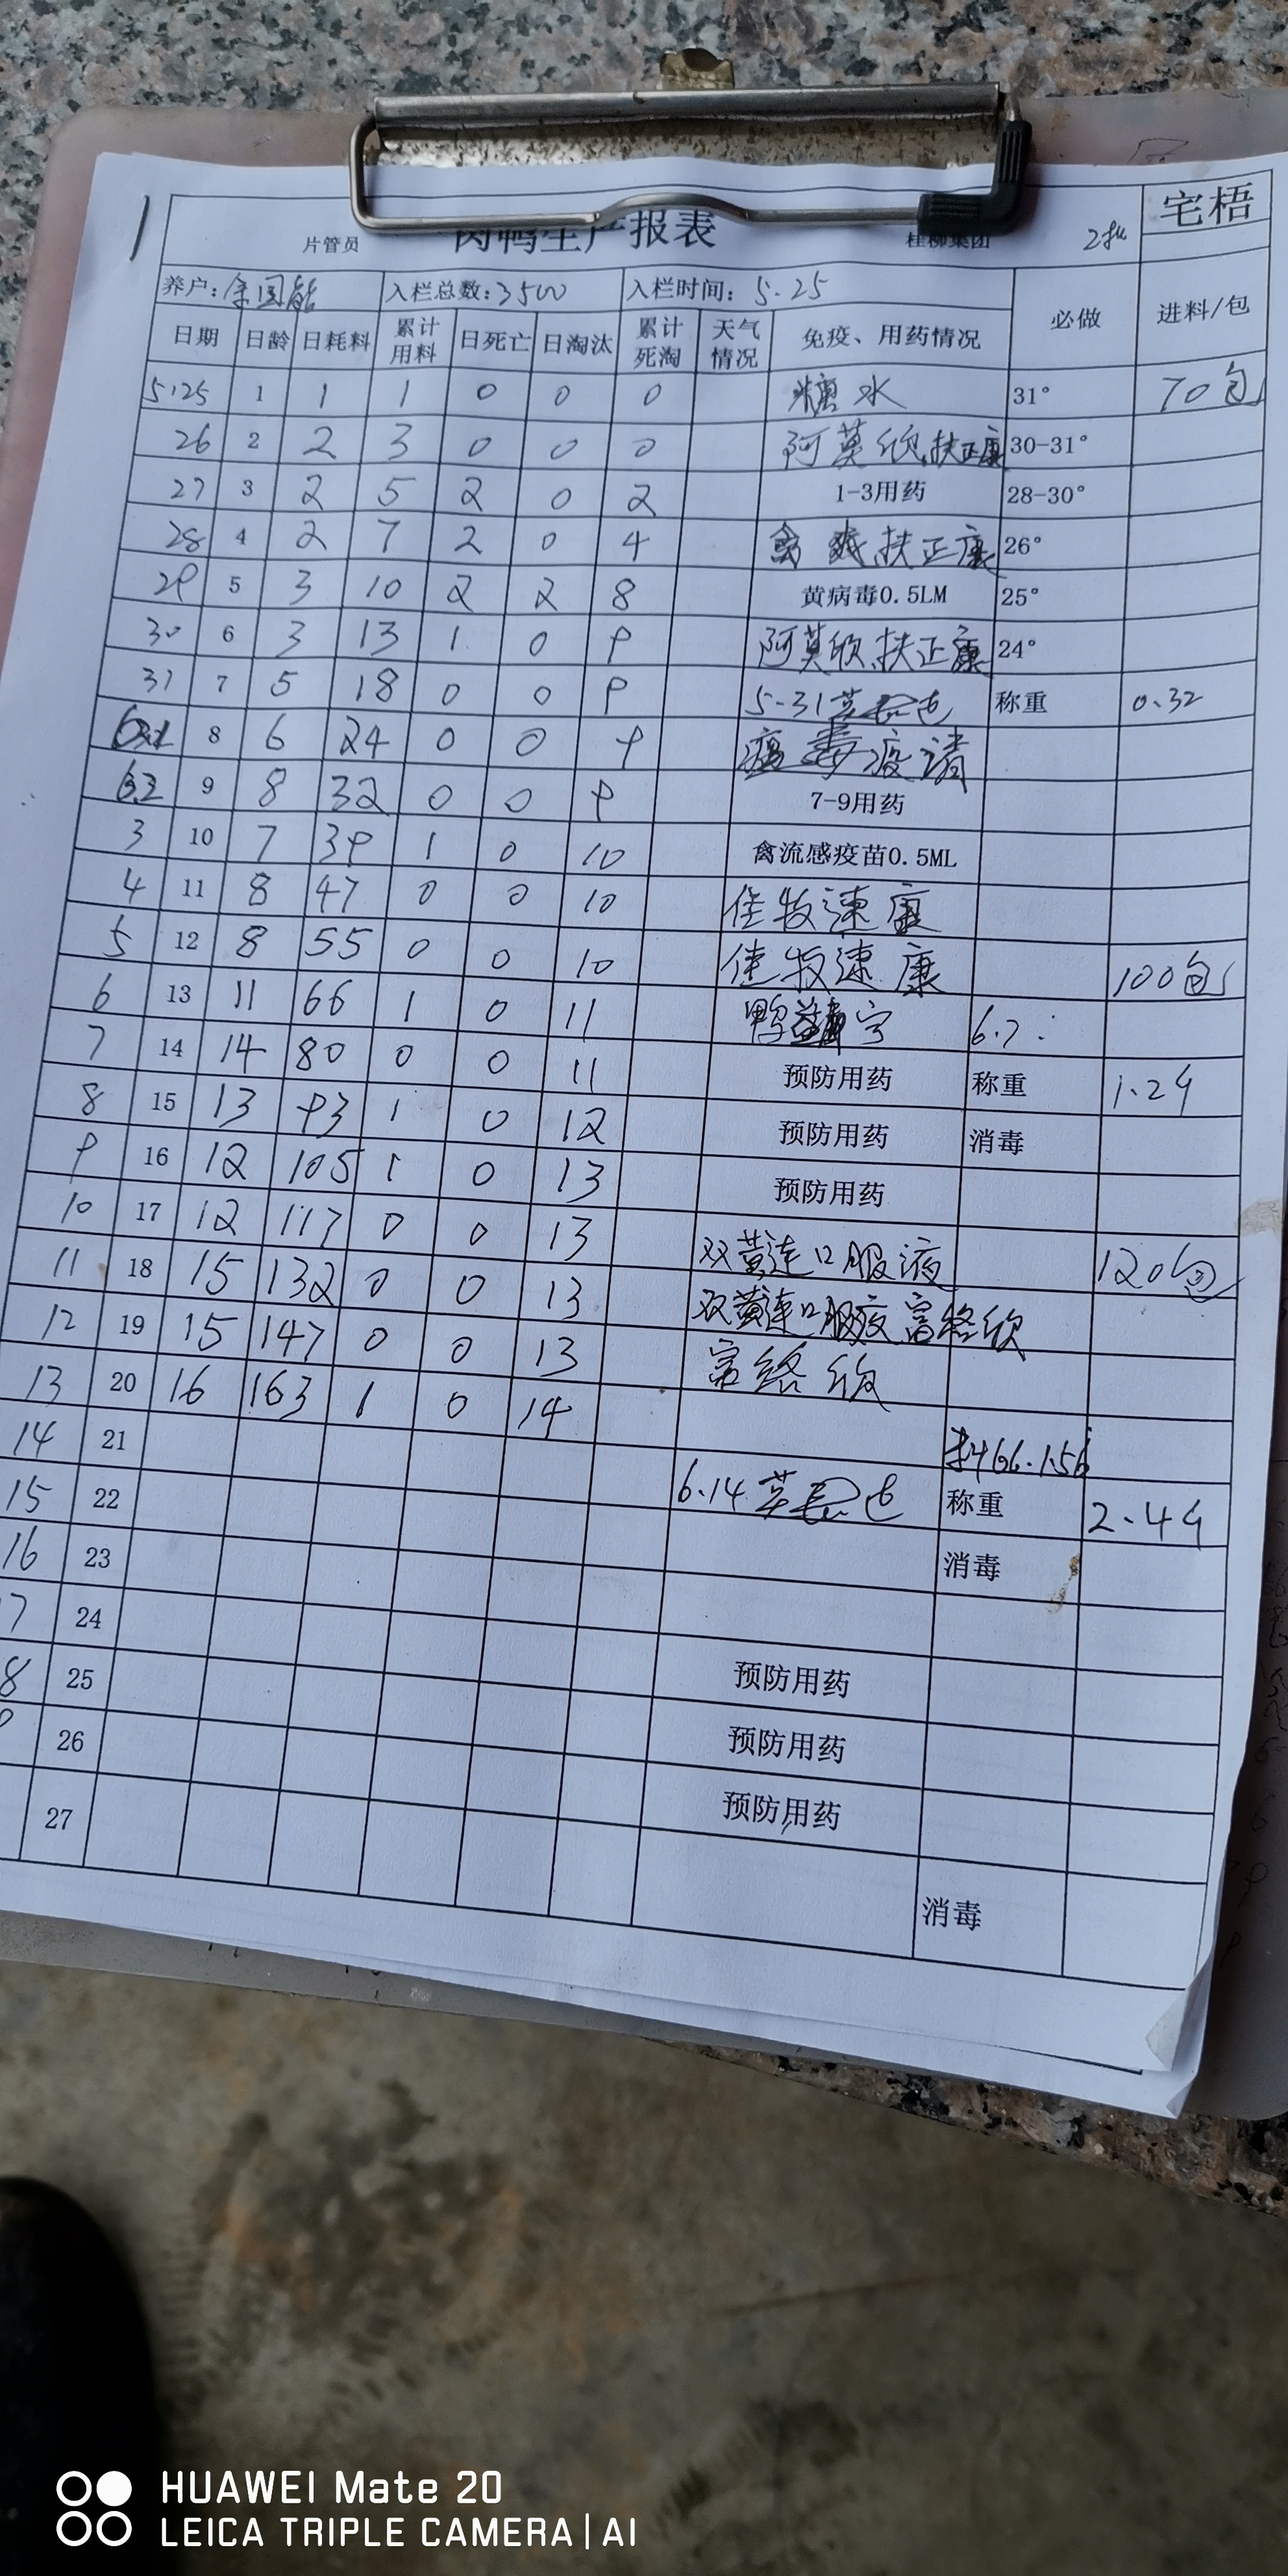 片管员 肉鸭生产报表 桂柳集团 2批 宅梧
养户:余国能 入栏总数:3500 入栏时间:5.25 必做 进料/包
日期 日龄 日耗料 累计用料 日死亡 日淘汰 累计死淘 天气情况 免疫、用药情况
5.25 1 1 1 0 0 0 糖水 31° 70包
26 2 2 3 0 0 0 阿莫欣.扶正康 30-31°
27 3 2 5 2 0 2 1-3用药 28-30°
28 4 2 7 2 0 4 扶正康 26°
29 5 3 10 2 2 8 黄病毒0.5LM 25°
30 6 3 13 1 0 9 阿莫欣.扶正康 24°
31 7 5 18 0 0 9 5-31 称重 0.32
8 6 24 0 0 9 病毒疫清
6.2 9 8 32 0 0 9 7-9用药
3 10 7 39 1 0 10 禽流感疫苗0.5ML
4 11 8 47 0 0 10 佳牧速康
5 12 8 55 0 0 10 佳牧速康 100包
6 13 11 66 1 0 11 鸭 宁 6.7:
7 14 14 80 0 0 11 预防用药 称重 1.24
8 15 13 93 1 0 12 预防用药 消毒
9 16 12 105 1 0 13 预防用药
10 17 12 117 0 0 13 双黄连口服液 120包
11 18 15 132 0 0 13 双黄连口服液 富络欣
12 19 15 147 0 0 13 富络欣
13 20 16 163 1 0 14
14 21 466.1.56
15 22 6.14 称重 2.44
16 23 消毒
7 24
8 25 预防用药
26 预防用药
27 预防用药
消毒
HUAWEI Mate 20
LEICA TRIPLE CAMERA | AI